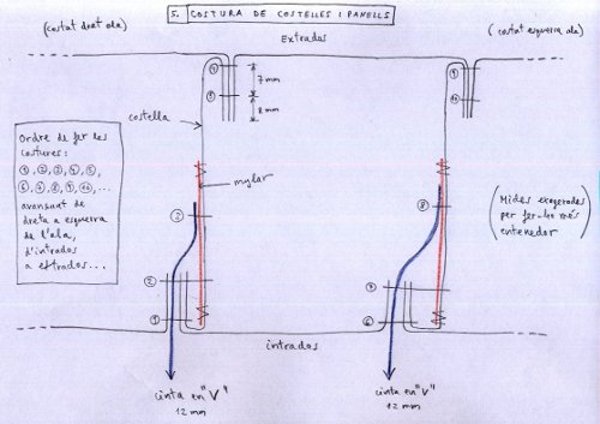 5. COSTURA DE COSTELLES I PANELLS
(costat dret ala)
Extrados
(costat esquerra ala)
4
5
7 mm
8 mm
9
10
costella
Ordre de fer les
costures:
1, 2, 3, 4, 5,
6, 7, 8, 9, 10, ...
avançant de
dreta a esquerra
de l'ala,
d'intrados
a extrados...
mylar
3
8
(Mides exagerades
per fer-ho més
entenedor)
2
7
1
6
intrados
cinta en "V"
12 mm
cinta en "V"
12 mm